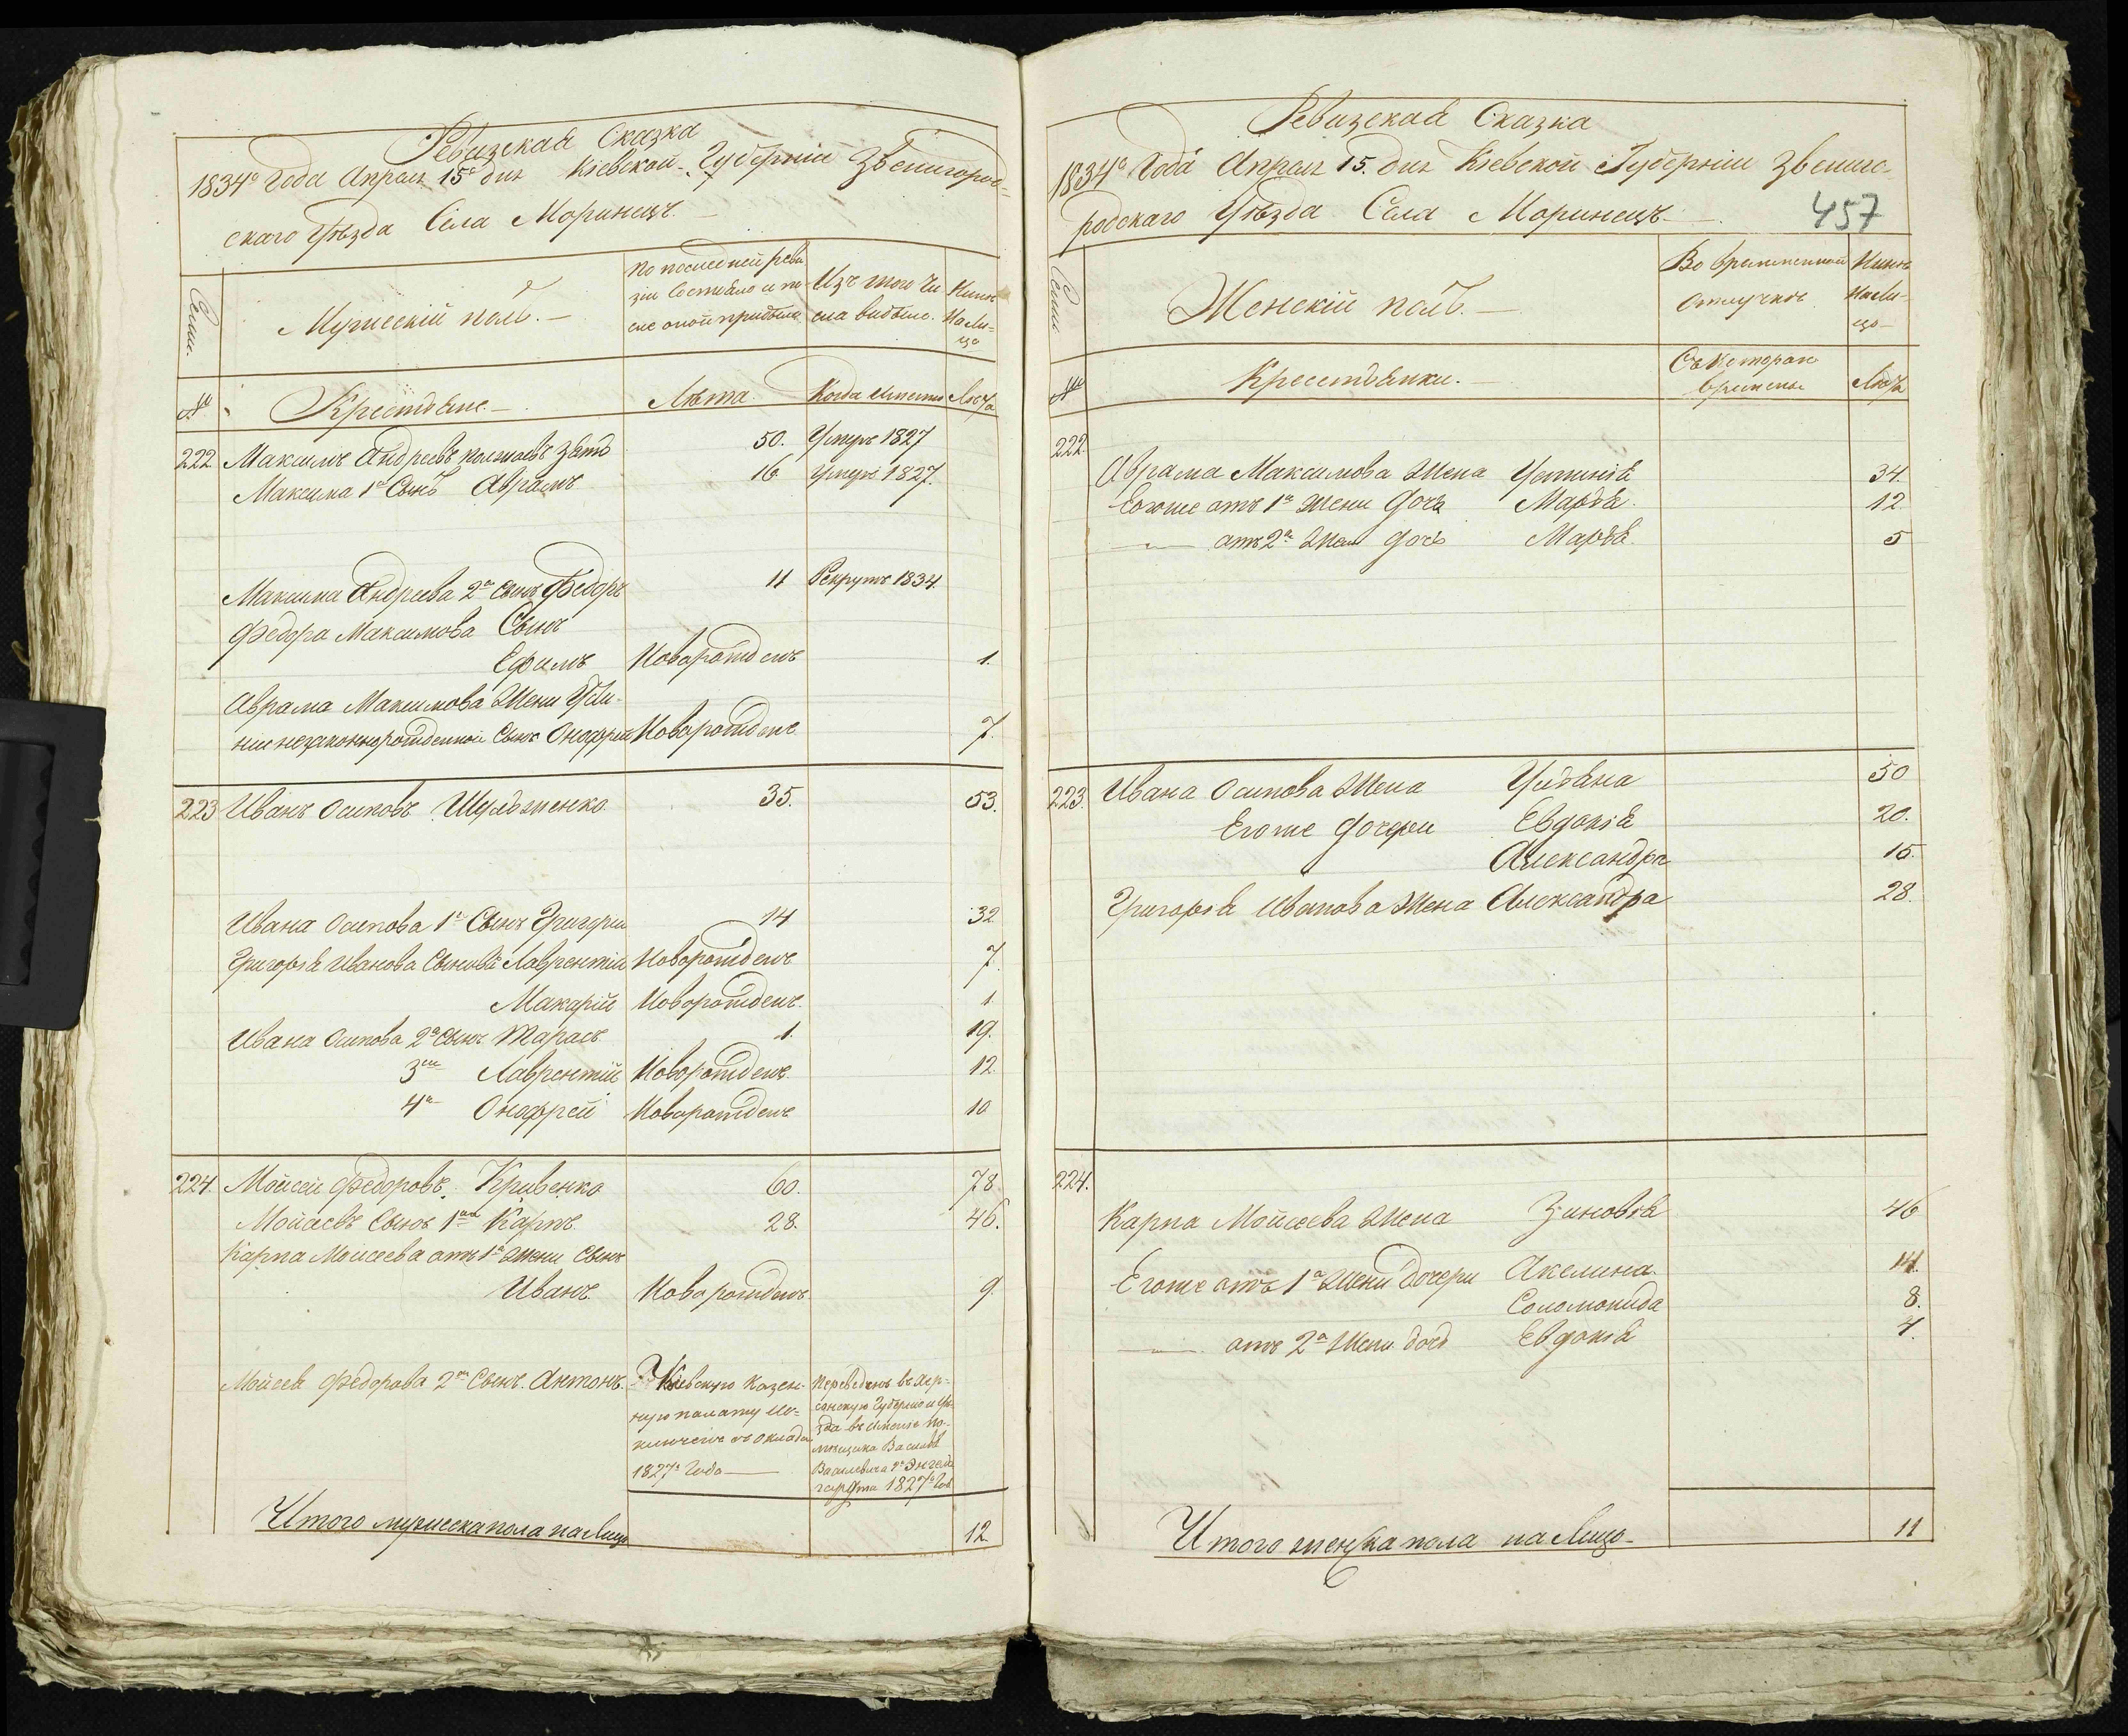 Ревизская Сказка
1834го Года Апреля 15го дня Кіевской Губерніи Звенигород-
скаго Уѣзда Села Моринецъ.
Семьи.
Мужескій полъ.
По последней реви
зіи Состояло и по-
сле оной прибыло
Изъ того Чи
сла выбыло.
Нынѣ
На Ли-
цо
№
Крестьяне.
Лѣта.
Когда именно
Лѣта
222. Максимъ Андреевъ зять 50. Умеръ 1827
Максима 1й Сынъ Аврамъ 16 умеръ 1827.
Максима Андреева 2й Сынъ Федоръ 11 Рекрутъ 1834.
Федора Максимова Сынъ
Ефимъ Новорожденъ 1.
Аврама Максимова Жени Усти-
ніи незаконнорожденной Сынъ Онофрей Новорожденъ 7.
223 Иванъ Осиповъ Шульженко 35. 53.
Ивана Осипова 1й Сынъ Григорій 14 32
Григорія Иванова Сыновья Лаврентій Новорожденъ 7.
Макарій Новорожденъ. 1.
Ивана Осипова 2й Сынъ Тарасъ 1. 19.
3й Лаврентій Новорожденъ. 12.
4й Онофрей Новорожденъ 10
224. Мойсей Федоровъ Кривенко 60. 78.
Мойсеевъ Сынъ 1й Карпъ 28. 46.
Карпа Мойсеева отъ 1й Жени Сынъ
Иванъ. Новорожденъ 9.
Мойсея Федорова 2й Сынъ Антонъ.
Кіевскую Казен-
ную палату
въ оклада
1827го Года
Переведенъ въ Хер-
сонскую Губернію и Уѣ-
зда въ имѣніе По-
мѣщика Василія
Васильевича Энгель
гардта 1827го Года
Итого мужеска пола на Лицо 12.
Ревизская Сказка
1834го Года Апреля 15. дня Кіевской Губерніи Звениго-
родскаго Уѣзда Села Моринецъ
457
Семьи
Женскій полъ.
Во временной
отлучкѣ
Нынѣ
На Ли-
цо
№
Крестьянки.
Съ Котораго
времены
Лѣта
222.
Аврама Максимова Жена Устинія 34.
Егоже отъ 1й Жени дочь Марья. 12.
отъ 2й Жени дочь Марья. 5
223. Ивана Осипова Жена Ульяна 50
Егоже дочери Евдокія 20.
Александра 15.
Григорія Иванова Жена Александра 28.
224.
Карпа Мойсеева Жена Зиновія 46
Егоже отъ 1й Жени дочери Акелина. 14.
Соломонида 8.
отъ 2й Жени дочь Евдокія 4.
Итого женска пола на Лицо 11